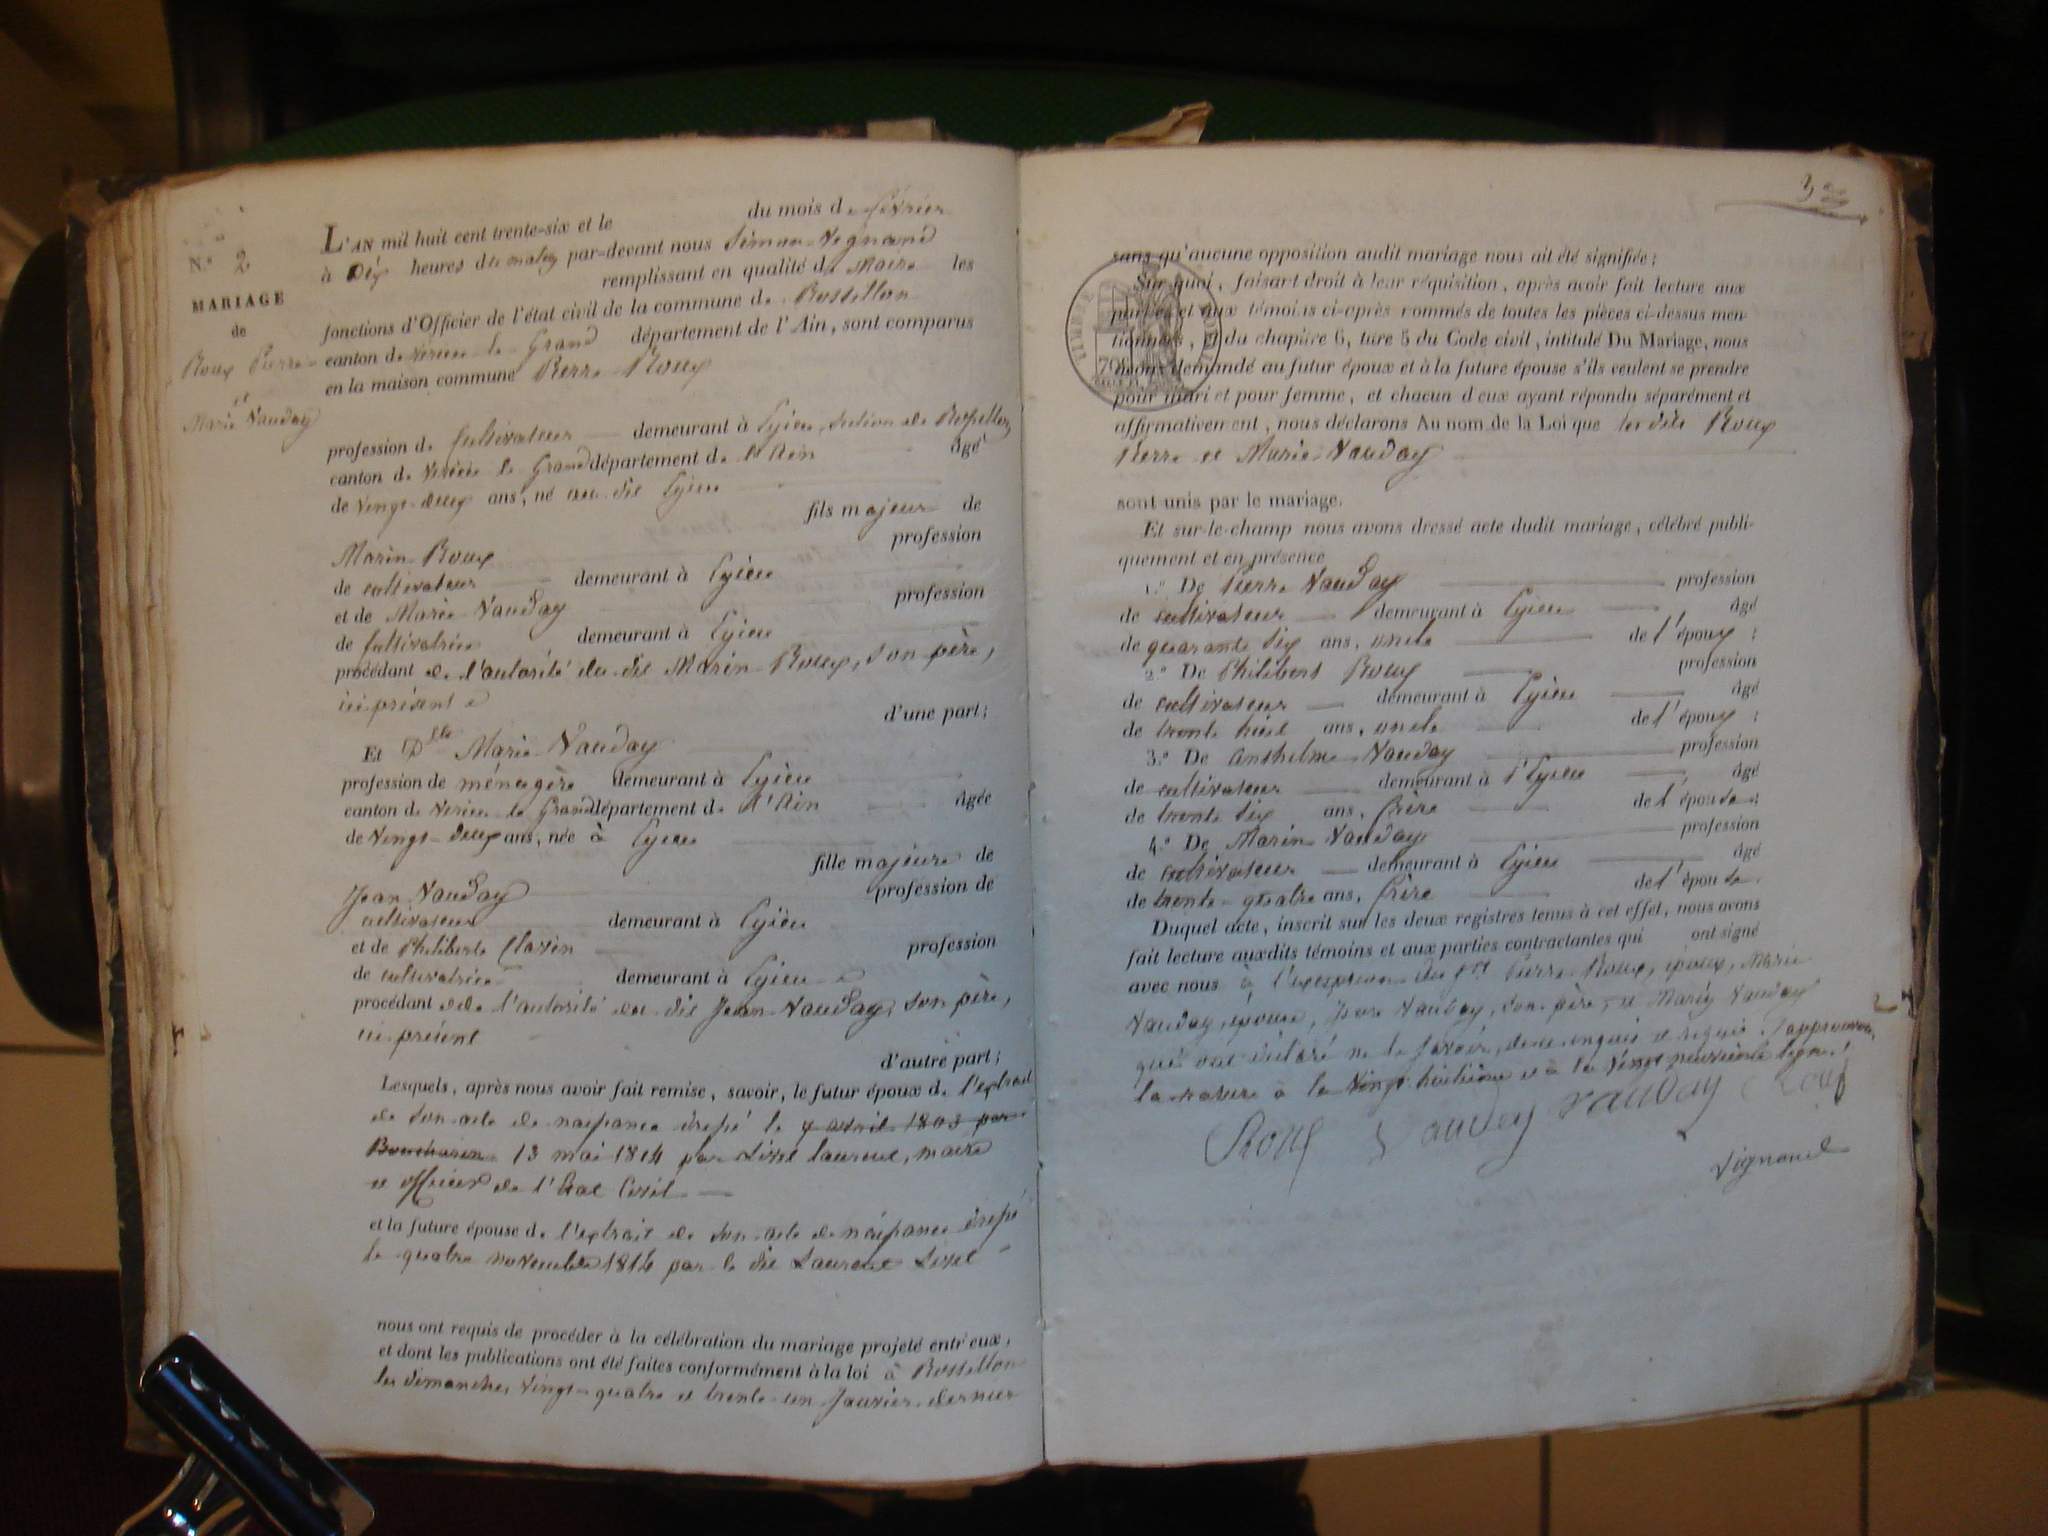 N.° 2
MARIAGE
de
Roux Pierre
et
Marie Vauday
L'AN mil huit cent trente-six et le du mois de février
à Dix heures du matin par-devant nous Simon Vignand
remplissant en qualité de Maire les
fonctions d'Officier de l'état civil de la commune de Rossillon
canton de Virieu le Grand département de l'Ain, sont comparus
en la maison commune Pierre Roux
profession de Cultivateur demeurant à Egieu, section de Rossillon
canton de Virieu le Grand département de l'Ain âgé
de vingt-deux ans, né au dit Egieu
fils majeur de
Marin Roux profession
de cultivateur demeurant à Egieu
et de Marie Vauday profession
de Cultivatrice demeurant à Egieu
procédant de l'autorité du dit Marin Roux, son père,
ici présent
d'une part;
Et Dlle Marie Vauday
profession de ménagère demeurant à Egieu
canton de Virieu le Grand département de l'Ain âgée
de vingt-deux ans, née à Egieu
fille majeure de
Jean Vauday profession de
cultivateur demeurant à Egieu
et de Philiberte Clavin profession
de cultivatrice demeurant à Egieu
procédant de l'autorité du dit Jean Vauday, son père,
ici présent
d'autre part;
Lesquels, après nous avoir fait remise, savoir, le futur époux de l'extrait
de son acte de naissance dressé le 7 avril 1803 par
13 mai 1814 par Sivel Laurent, maire
et officier de l'Etat Civil
et la future épouse de l'extrait de son acte de naissance dressé
le quatre novembre 1814 par le dit Laurent Sivel
nous ont requis de procéder à la célébration du mariage projeté entr'eux,
et dont les publications ont été faites conformément à la loi à Rossillon
les dimanches vingt-quatre et trente-un Janvier dernier
3
sans qu'aucune opposition audit mariage nous ait été signifiée;
Sur quoi, faisant droit à leur réquisition, après avoir fait lecture aux
parties et aux témoins ci-après nommés de toutes les pièces ci-dessus men-
tionnées, et du chapitre 6, titre 5 du Code civil, intitulé Du Mariage, nous
avons demandé au futur époux et à la future épouse s'ils veulent se prendre
pour mari et pour femme, et chacun d'eux ayant répondu séparément et
affirmativement, nous déclarons Au nom de la Loi que les dits Roux
Pierre et Marie Vauday
sont unis par le mariage.
Et sur-le-champ nous avons dressé acte dudit mariage, célébré publi-
quement et en présence
1.° De Pierre Vauday profession
de cultivateur demeurant à Egieu âgé
de quarante six ans, oncle de l'époux;
2.° De Philibert Roux profession
de cultivateur demeurant à Egieu âgé
de trente huit ans, oncle de l'époux;
3.° De Anthelme Vauday profession
de cultivateur demeurant à l'Egieu âgé
de trente six ans, frère de l'épouse;
4.° De Marin Vauday profession
de cultivateur demeurant à Egieu âgé
de trente-quatre ans, frère de l'épouse.
Duquel acte, inscrit sur les deux registres tenus à cet effet, nous avons
fait lecture auxdits témoins et aux parties contractantes qui ont signé
avec nous à l'exception des Srs Pierre Roux, époux, Marie
Vauday, épouse, Jean Vauday, son père, et Marin Vauday
qui ont déclaré ne le savoir, de ce enquis et requis. J'approuve
la rature à la vingt huitième et à la vingt neuvième ligne.
Roux Vauday Vauday Roux
Vignand